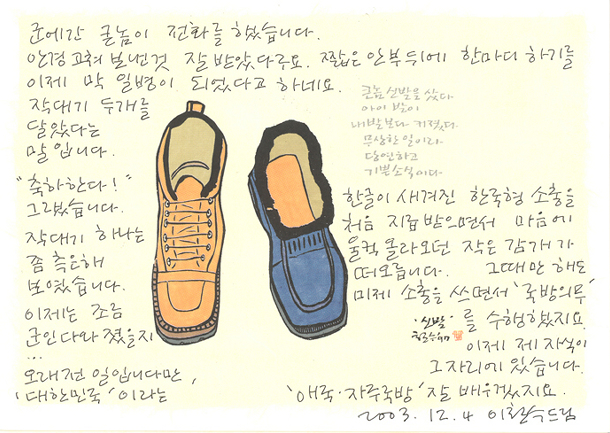 군에간 큰놈이 전화를 했습니다.
안경 고쳐 보낸것 잘 받았다구요. 짧은 안부 뒤에 한마디 하기를
이제 막 일병이 되었다고 하네요.
작대기 두개를
달았다는
말 입니다.
"축하한다!"
그랬습니다.
작대기 하나는
좀 측은해
보였습니다.
이제는 조금
군인다와 졌을지
...
오래전 일입니다만,
'대한민국' 이라는
큰놈 신발을 샀다
아이 발이
내발보다 커졌다.
무상한 일이라
당연하고
기쁜소식이다.
한글이 새겨진 한국형 소총을
처음 지급 받으면서 마음에
울컥 올라오던 작은 감개가
떠오릅니다. 그때만 해도
미제 소총을 쓰면서 '국방의무'
를 수행했지요.
이제 제 자식이
그 자리에 있습니다.
'애국·자주국방' 잘 배우겠지요.
'신발'
2003. 12. 4 이철수드림